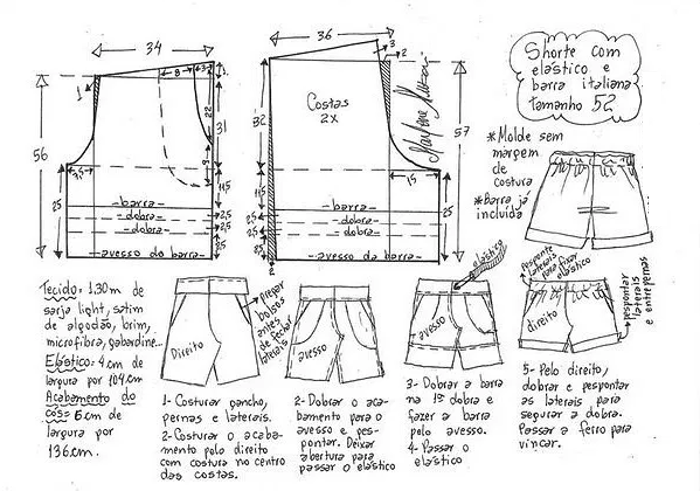 Shorte com
elástico e
barra italiana
tamanho 52
* Molde sem
margem
de
costura
* Barra já
incluída
34
8
3
1
1
22
31
56
9
7,5
11,5
25
2,5
2,5
2,5
barra
dobra
dobra
avesso da barra
36
3
2
Costas
2x
32
57
15
11,5
25
25
2,5
2,5
2,5
2
barra
dobra
dobra
avesso da barra
Tecido= 1.30m de
sarja light, satim
de algodão, brim,
microfibra, gabardine...
Elástico= 4cm de
largura por 104cm
Acabamento do
cós= 6cm de
largura por
136cm.
Direito
Pregar
bolsos
antes
de fechar
laterais
1- Costurar gancho,
pernas e laterais.
2- Costurar o acaba-
mento pelo direito
com costura no centro
das costas.
avesso
2- Dobrar o aca-
bamento para o
avesso e pes-
pontar. Deixar
abertura para
passar o elástico
elástico
avesso
3- Dobrar a barra
na 1ª dobra e
fazer a barra
pelo avesso.
4- Passar o
elástico
Pesponte
laterais
para fixar
elástico
direito
pespontar
laterais
e entrepernas
5- Pelo direito,
dobrar e pespontar
as laterais para
segurar a dobra.
Passar a ferro para
vincar.